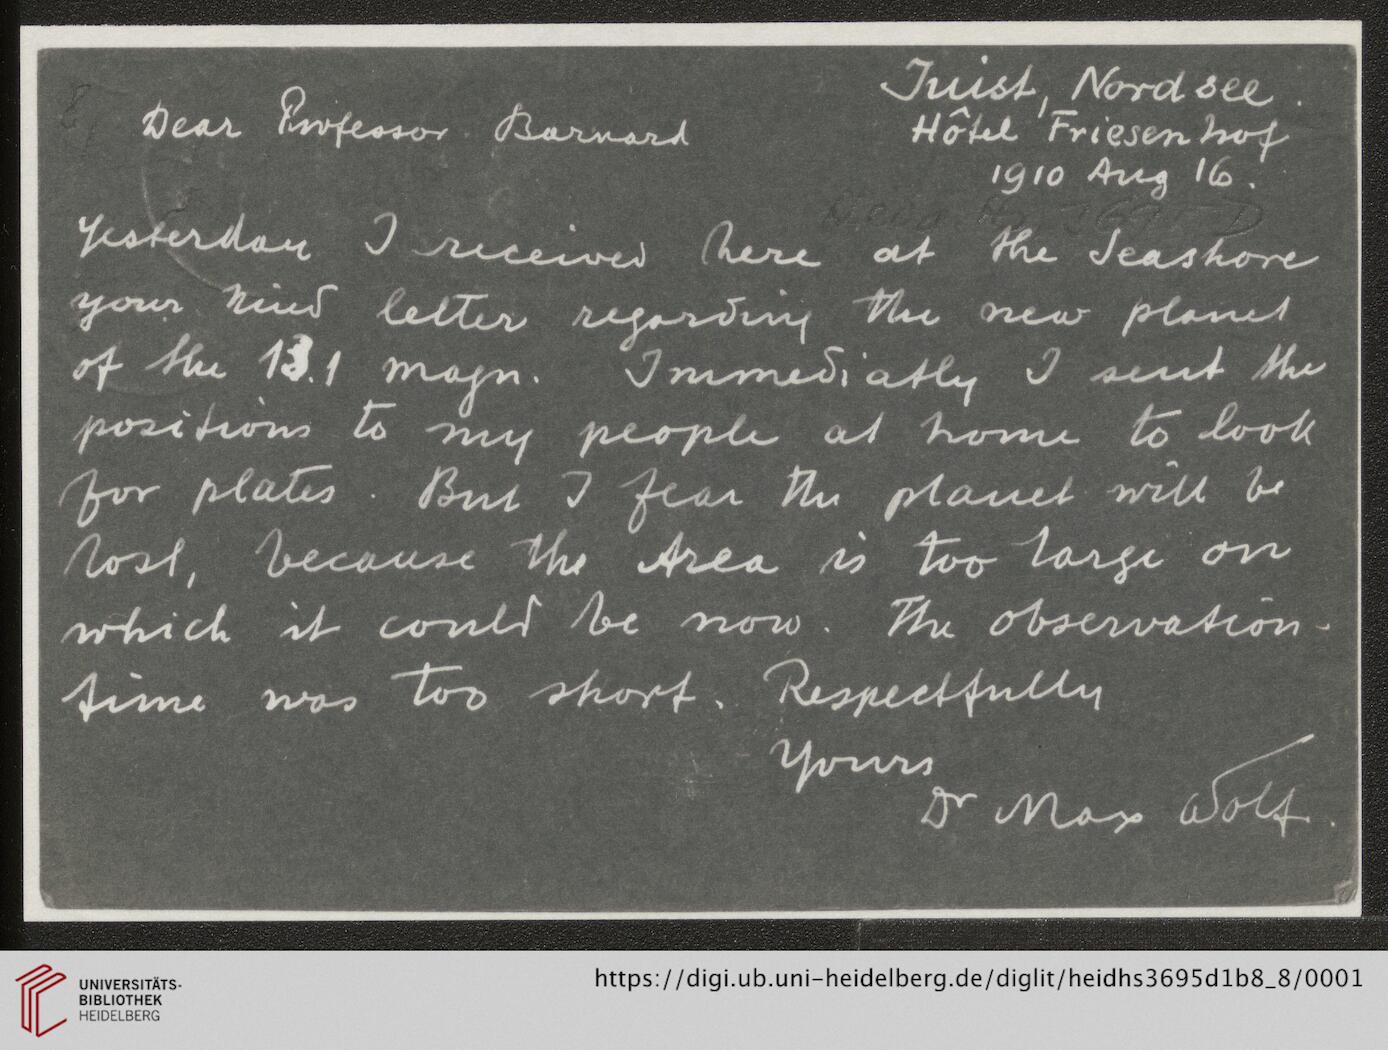 Juist, Nordsee.
Hôtel Friesenhof
1910 Aug 16.
Dear Professor Barnard
Yesterday I received here at the Seashore
your kind letter regarding the new planet
of the 13.1 magn. Immediatly I sent the
positions to my people at home to look
for plates. But I fear the planet will be
lost, because the Area is too large on
which it could be now. The observation-
time was too short. Respectfully
Yours
Dr Max Wolf.
UNIVERSITÄTS-
BIBLIOTHEK
HEIDELBERG
https://digi.ub.uni-heidelberg.de/diglit/heidhs3695d1b8_8/0001